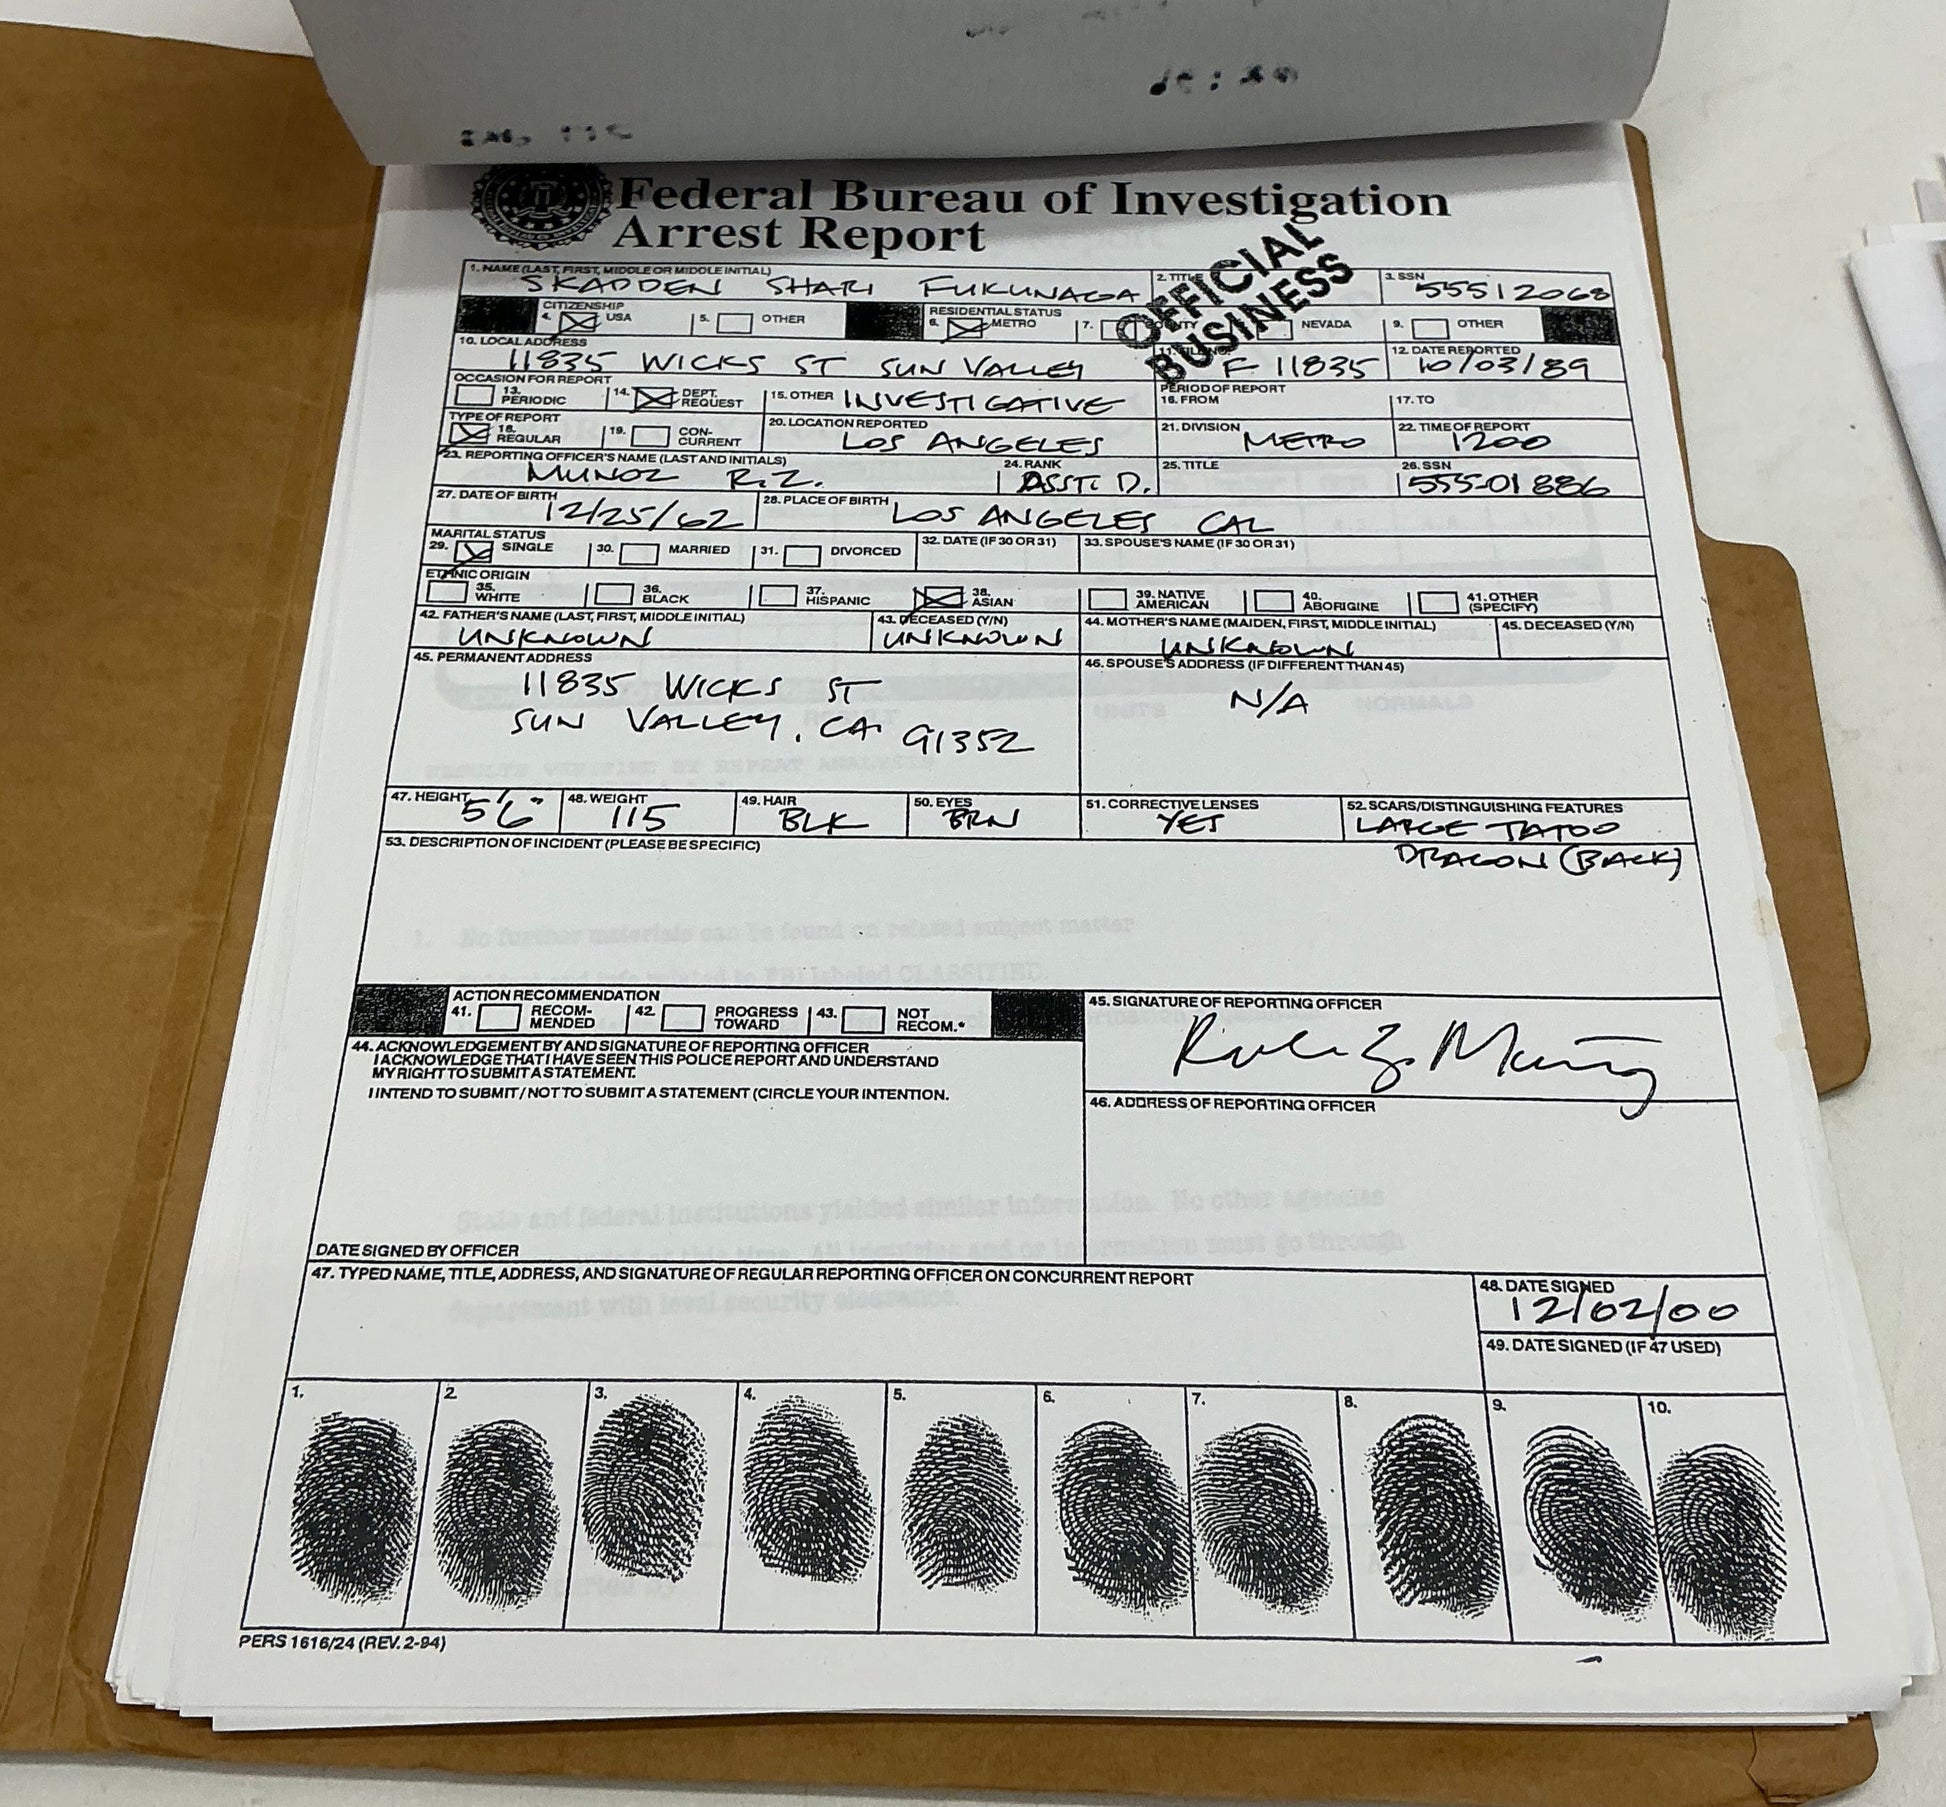 Federal Bureau of Investigation
Arrest Report
OFFICIAL
BUSINESS
1. NAME (LAST, FIRST, MIDDLE OR MIDDLE INITIAL)
SKADDEN SHARI FUKUNAGA
2. TITLE
3. SSN
55512068
CITIZENSHIP
4. USA
5. OTHER
RESIDENTIAL STATUS
6. METRO
7.
NEVADA
9. OTHER
10. LOCAL ADDRESS
11835 WICKS ST SUN VALLEY
F 11835
12. DATE REPORTED
10/03/89
OCCASION FOR REPORT
13. PERIODIC
14. DEPT. REQUEST
15. OTHER INVESTIGATIVE
PERIOD OF REPORT
16. FROM
17. TO
TYPE OF REPORT
18. REGULAR
19. CON-CURRENT
20. LOCATION REPORTED
LOS ANGELES
21. DIVISION
METRO
22. TIME OF REPORT
1200
23. REPORTING OFFICER'S NAME (LAST AND INITIALS)
MUNOZ R.Z.
24. RANK
ASST. D.
25. TITLE
26. SSN
555-01886
27. DATE OF BIRTH
12/25/62
28. PLACE OF BIRTH
LOS ANGELES CAL
MARITAL STATUS
29. SINGLE
30. MARRIED
31. DIVORCED
32. DATE (IF 30 OR 31)
33. SPOUSE'S NAME (IF 30 OR 31)
ETHNIC ORIGIN
35. WHITE
36. BLACK
37. HISPANIC
38. ASIAN
39. NATIVE AMERICAN
40. ABORIGINE
41. OTHER (SPECIFY)
42. FATHER'S NAME (LAST, FIRST, MIDDLE INITIAL)
UNKNOWN
43. DECEASED (Y/N)
UNKNOWN
44. MOTHER'S NAME (MAIDEN, FIRST, MIDDLE INITIAL)
UNKNOWN
45. DECEASED (Y/N)
45. PERMANENT ADDRESS
11835 WICKS ST
SUN VALLEY, CA. 91352
46. SPOUSE'S ADDRESS (IF DIFFERENT THAN 45)
N/A
47. HEIGHT
5'6"
48. WEIGHT
115
49. HAIR
BLK
50. EYES
BRN
51. CORRECTIVE LENSES
YES
52. SCARS/DISTINGUISHING FEATURES
LARGE TATOO
DRAGON (BACK)
53. DESCRIPTION OF INCIDENT (PLEASE BE SPECIFIC)
1. No further materials can be found on related subject matter
CLASSIFIED.
ACTION RECOMMENDATION
41. RECOM-MENDED
42. PROGRESS TOWARD
43. NOT RECOM.*
44. ACKNOWLEDGEMENT BY AND SIGNATURE OF REPORTING OFFICER
I ACKNOWLEDGE THAT I HAVE SEEN THIS POLICE REPORT AND UNDERSTAND
MY RIGHT TO SUBMIT A STATEMENT.
I INTEND TO SUBMIT / NOT TO SUBMIT A STATEMENT (CIRCLE YOUR INTENTION.
45. SIGNATURE OF REPORTING OFFICER
46. ADDRESS OF REPORTING OFFICER
State and federal institutions yielded similar information. No other agencies
must go through
department with level security clearance.
DATE SIGNED BY OFFICER
47. TYPED NAME, TITLE, ADDRESS, AND SIGNATURE OF REGULAR REPORTING OFFICER ON CONCURRENT REPORT
48. DATE SIGNED
12/02/00
49. DATE SIGNED (IF 47 USED)
1. 2. 3. 4. 5. 6. 7. 8. 9. 10.
PERS 1616/24 (REV. 2-94)